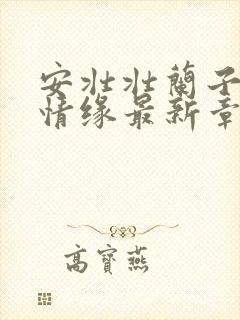 安壮壮蘭子
情缘最新章
高寶燕